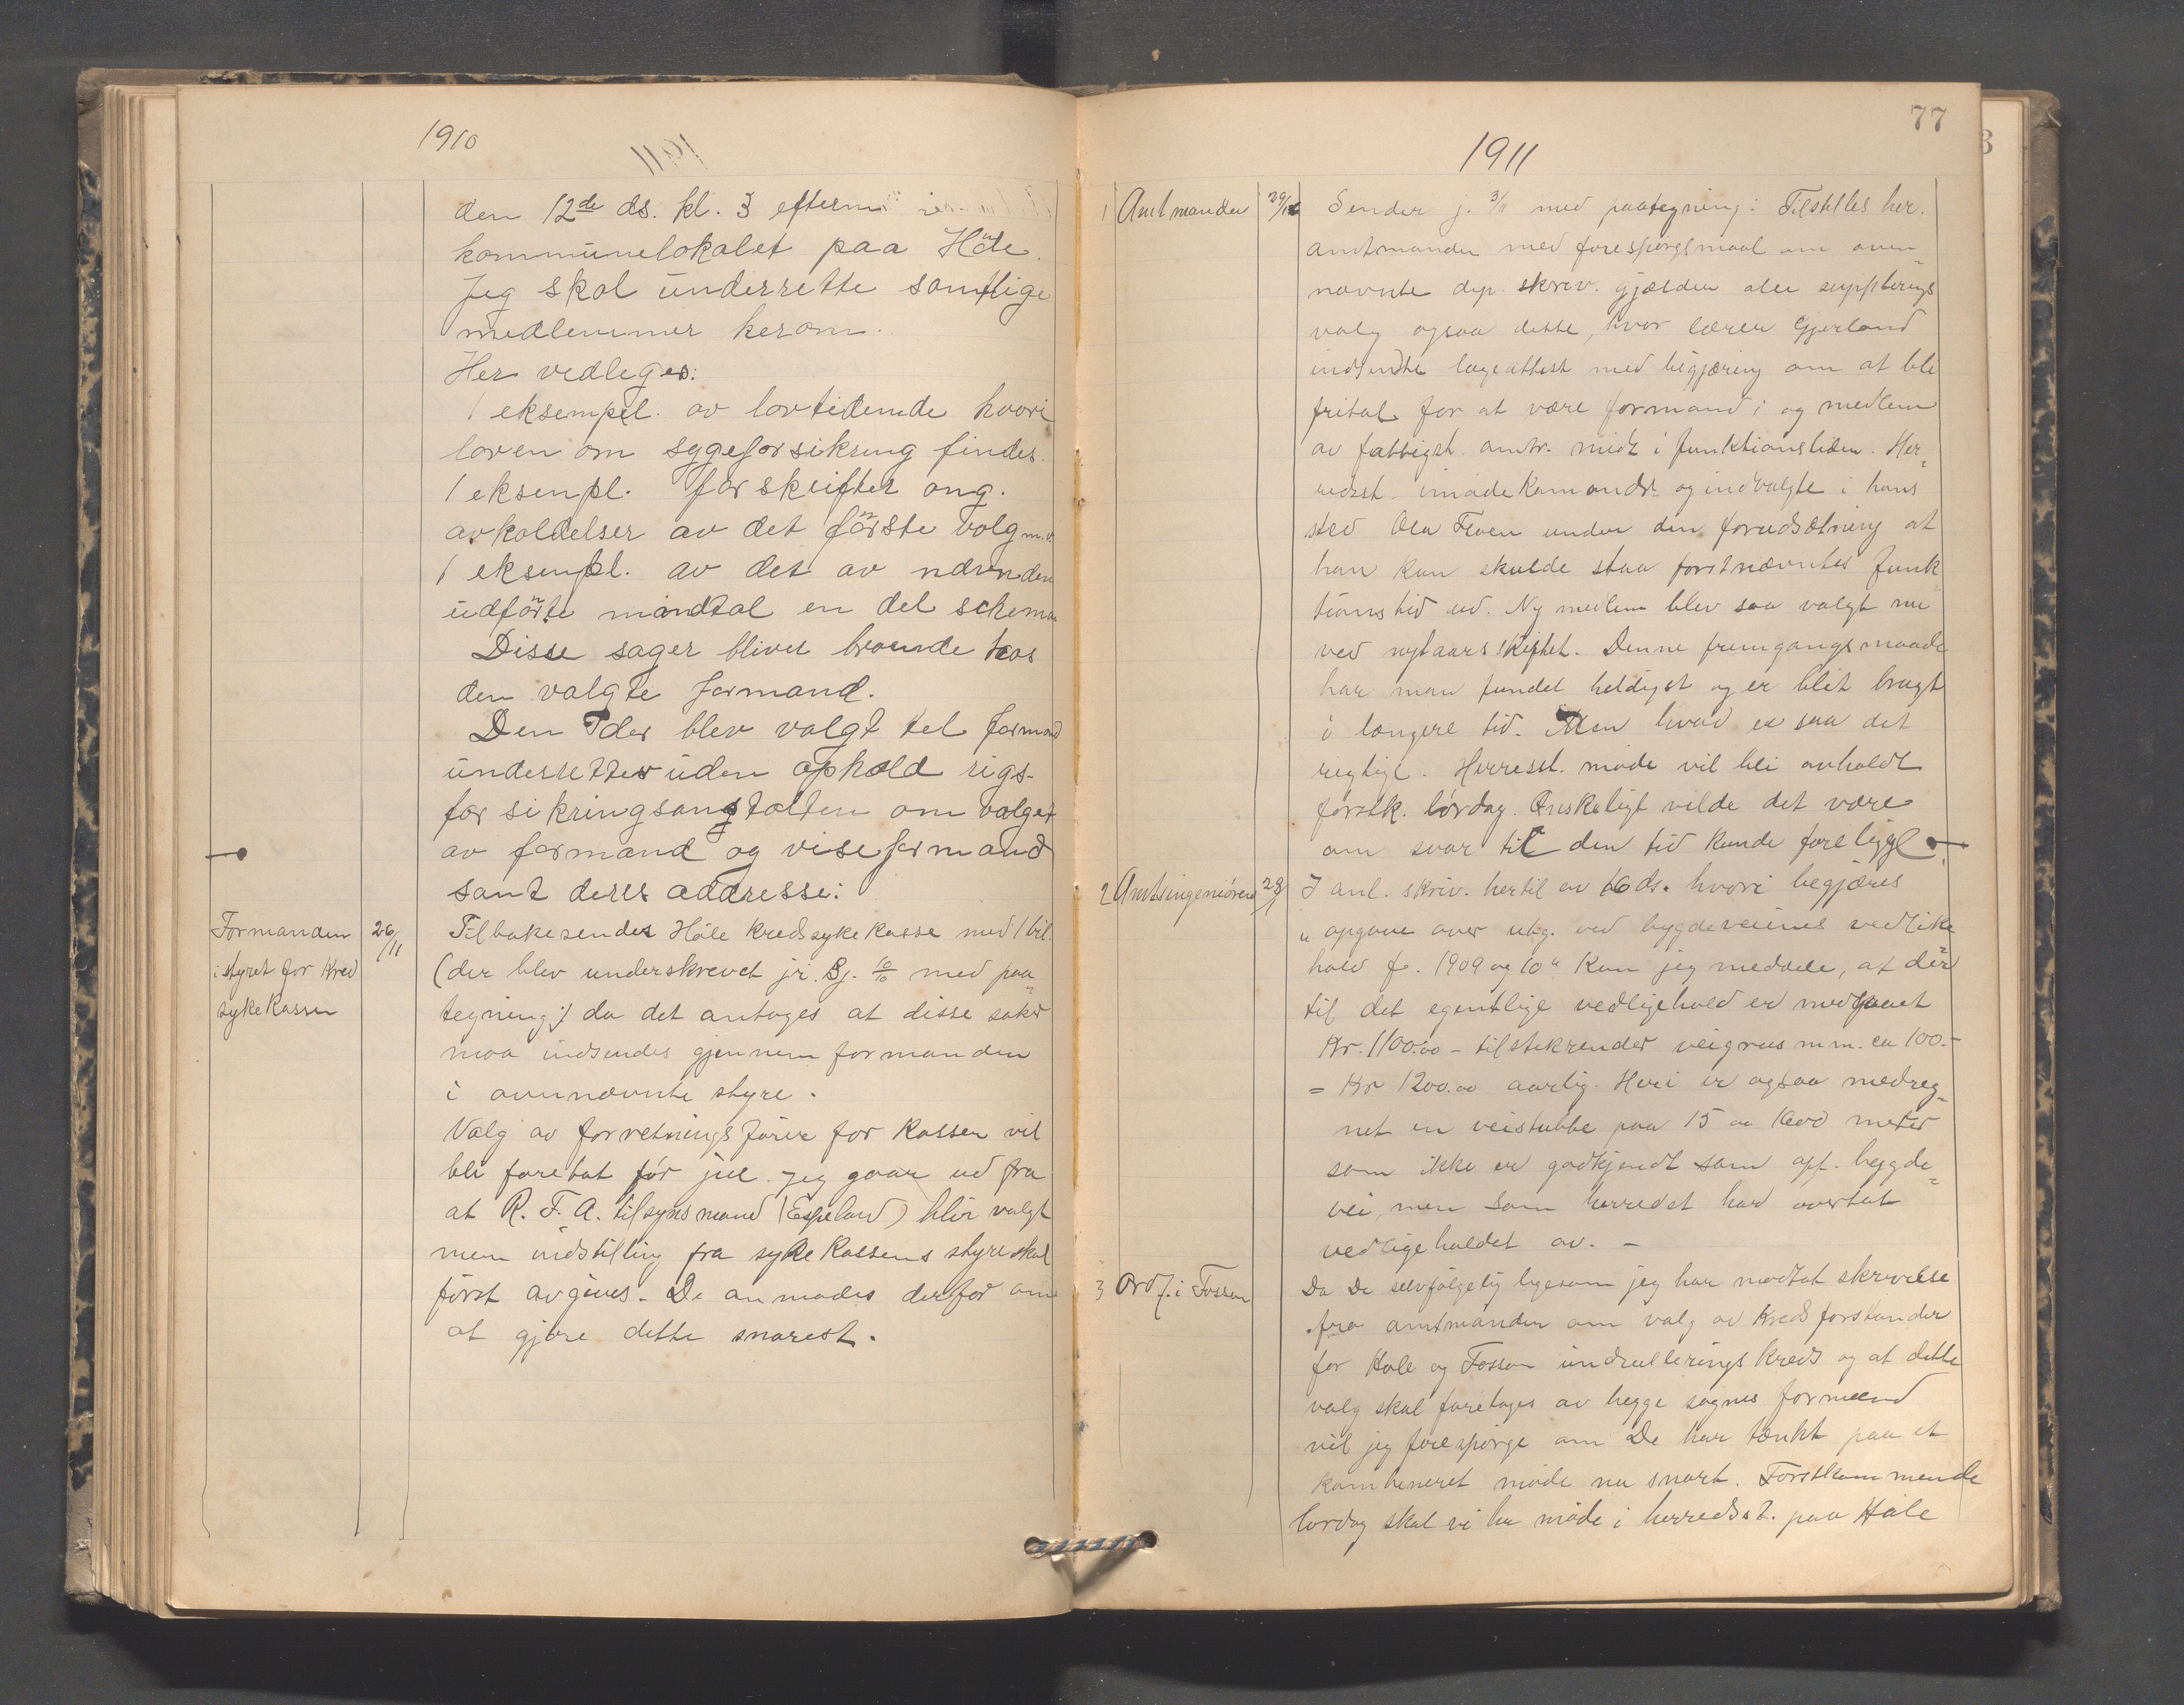 1910
den 12de ds. kl. 3 efterm i
kommunelokalet paa Höle.
Jeg skal underrette samtlige
medlemmer herom.
Her vedleges:
1 eksempel. av lovtidende hvori
loven om sygeforsikring findes.
1 eksenpl. forskrifter ang.
avholdelser av det förste valg m.v.
1 eksenpl. av det av
udförte mandtal en del schemaer
Disse sager bliver hos
den valgte formand.
Den der blev valgt til formand
underrettes uden ophold rigs-
forsikringsanstalten om valget
av formand og viseformand
samt deres addresse:
Formanden
i styret for Kred
sykekassen
26/11
Tilbakesendes Höle kredsykekasse med 1 bil.
(der blev underskrevet jr. Bj. 10/10 med paa
tegning) da det antages at disse saker
maa indsendes gjennem formanden
i ovennævnte styre.
Valg av forretningsförer for kassen vil
bli foretat för jul. Jeg gaar ud fra
at R. F. A. tilsynsmand (Espeland) blir valgt
men indstilling fra sykekassens styre skal
först avgives. De anmodes derfor om
at gjöre dette snarest.
77
1911
1 Amtmanden
Sender j. 3/11 med paategning: Tilstilles her.
amtmanden med forespörgsmaal om oven
nævnte dep. skriv. gjælder alle supplerings
valg ogsaa disse, hvor lærer Gjerland
indsendte lægeattest med begjæring om at bli
fritat for at være formand i og medlem
av fattigst. midt i funktionstiden. Her
redsst. imödekom andr. og indvalgte i hans
sted Ola under den forudsætning at
han kun skulde staa förstnævntes funk
tionstid ud. Ny medlem blev saa valgt nu
ved nytaarsskiftet. Denne fremgangsmaade
har man fundet heldigst og er blit brugt
i længere tid. Men hvad er saa det
rigtige. Herredst. möde vil bli avholdt
förstk. lördag. Önskeligt vilde det være
om svar til den tid kunde foreligge
2 Amtsingeniören
28/1
I anl. skriv. hertil av 16 ds. hvori begjæres
" opgave over utg. ved bygdeveienes vedlike
hold f. 1909 og 10" kan jeg meddele, at der
til det egentlige vedligehold er medgaaet
Kr. 1100.00 - til stikrender veigrus m.m. ca 100.-
= Kr 1200.00 aarlig. Heri er ogsaa medreg
net en veistubbe paa 15 a 1600 meter
som ikke er godkjendt som opt. bygde
vei, men som herredet har overtat
vedligeholdet av. -
3 Ordf. i Fossan
Da De selvfölgelig ligesom jeg har modtat skrivelse
fra amtmanden om valg av kredsforstander
for Höle og Fossan indrulleringskreds og at dette
valg skal foretages av begge sognes formænd
vil jeg forespörge om De har tænkt paa et
kombineret möde nu snart. Förstkommende
lördag skal vi ha möde i herredst. paa Höle